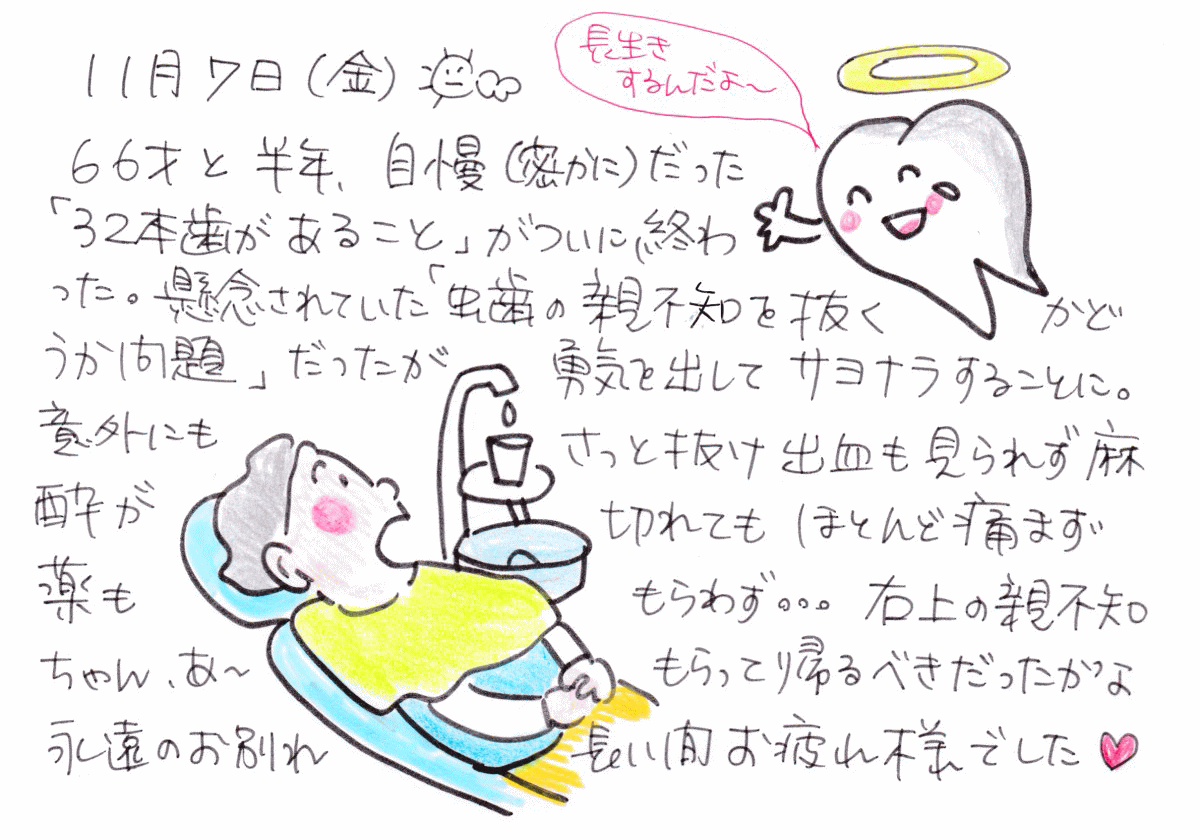 11月7日(金)
長生き
するんだよ〜
66才と半年、自慢(密かに)だった
「32本歯があること」がついに終わ
った。懸念されていた「虫歯の親不知を抜く かど
うか問題」だったが 勇気を出して サヨナラすることに。
意外にも さっと抜け 出血も見られず 麻
酔が 切れても ほとんど痛まず
薬も もらわず。。。 右上の親不知
ちゃん、あ〜 もらって帰るべきだったかな
永遠のお別れ 長い間お疲れ様でした